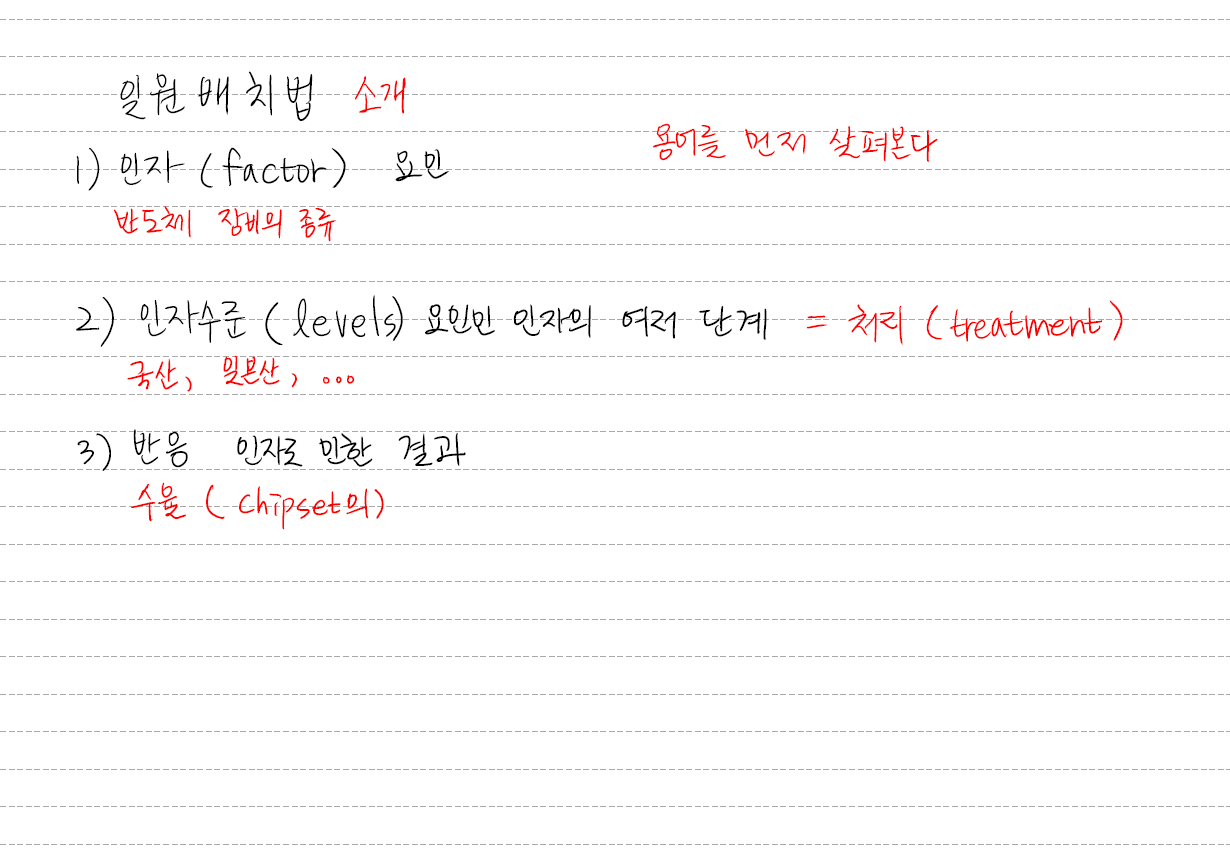 일원배치법 소개
용어를 먼저 살펴본다
1) 인자 (factor) 요인
반도체 장비의 종류
2) 인자수준 (levels) 요인인 인자의 여러 단계 = 처리 (treatment)
국산, 일본산, ...
3) 반응 인자로 인한 결과
수율 (chipset의)